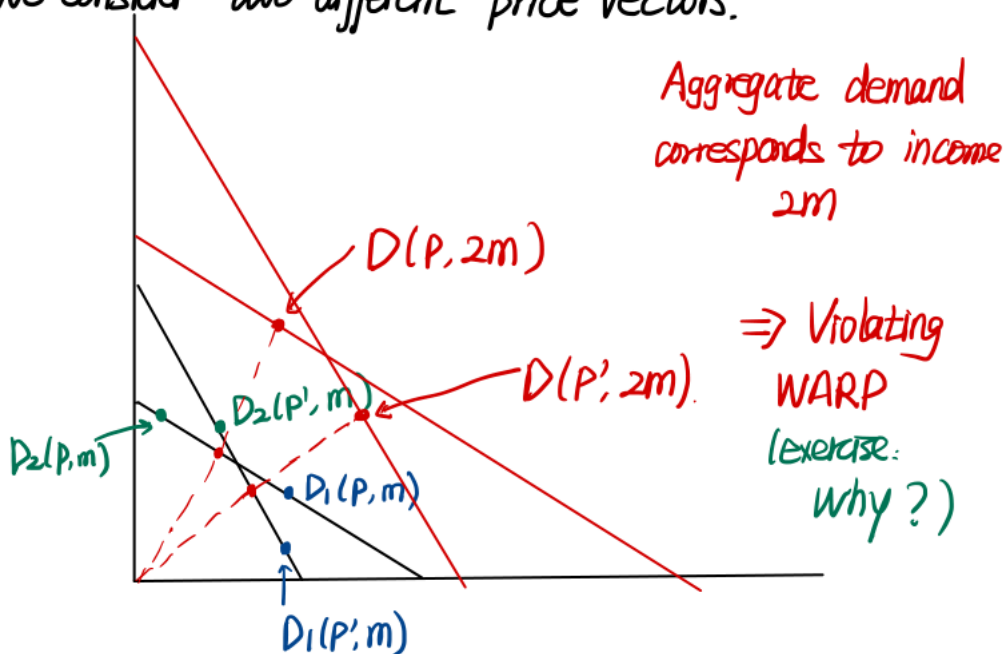 we consider two different price vectors.
Aggregate demand
corresponds to income
2m
D(p, 2m)
⇒ Violating
WARP
(exercise:
why?)
D(p', 2m).
D₂(p', m)
D₂(p,m)
D₁(p, m)
D₁(p', m)